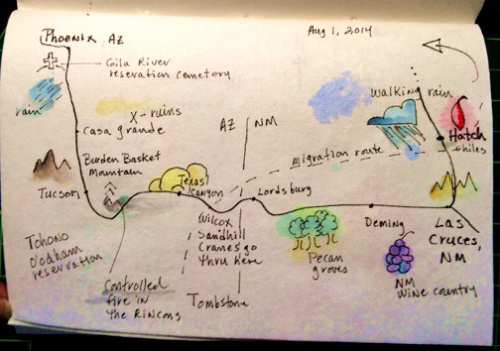 Phoenix AZ
Aug 1, 2014
Gila River
reservation cemetery
rain
X - ruins
Casa grande
AZ | NM
Walking rain
Hatch
chiles
migration route
Burden Basket
Mountain
Tucson
Texas
Canyon
Lordsburg
Wilcox
Sandhill
Cranes go
thru here
Deming
Las
Cruces,
NM
Tohono
O'odham
reservation
Pecan
groves
NM
Wine country
Controlled
fire in
the Rincons
Tombstone